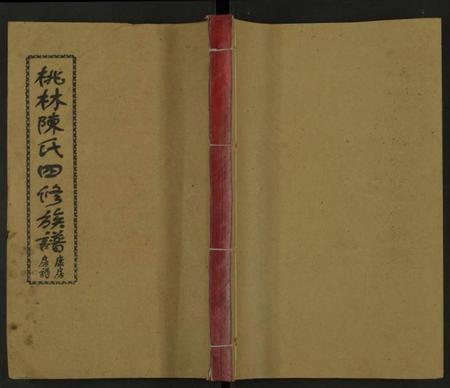 桃林陳氏四修族譜
康房
房譜